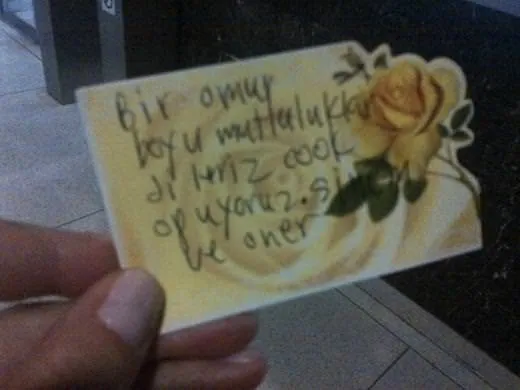 Bir omur
boyu mutluluklar
dileriz cook
opuyoruz.
ve oner